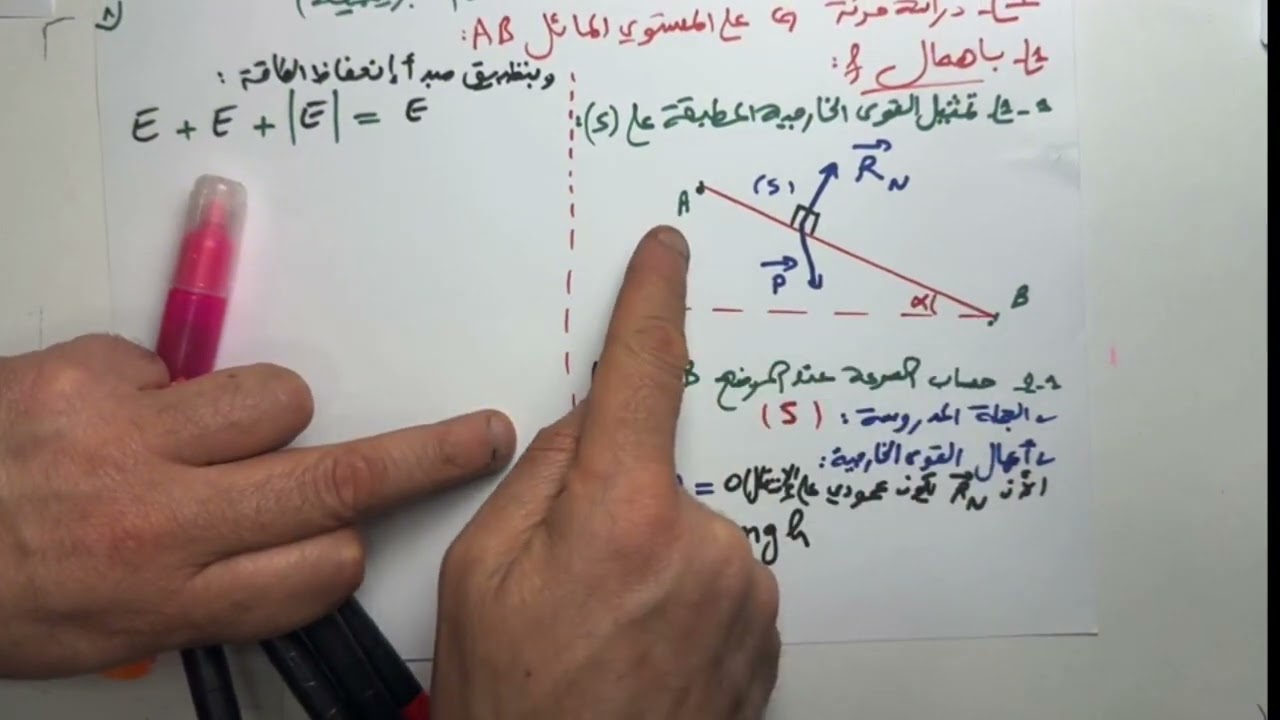 دراسة حركة G على المستوي المائل AB:
1- بإهمال f:
1-1- تمثيل القوى الخارجية المطبقة على (S):
R_N
(S)
A
P
α
B
1-2- حساب السرعة عند الموضع B
- الجملة المدروسة: (S)
- أعمال القوى الخارجية:
= 0 لأن R_N يكون عمودي على الإنتقال
mgh
وبتطبيق مبدأ إنحفاظ الطاقة:
E + E + |E| = E